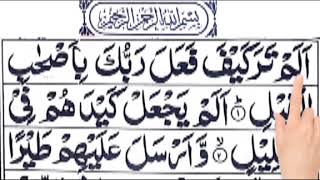 بِسْمِ اللّٰهِ الرَّحْمٰنِ الرَّحِيْمِ
اَلَمْ تَرَ كَيْفَ فَعَلَ رَبُّكَ بِاَصْحٰبِ
الْفِيْلِ ؕ﴿۱﴾ اَلَمْ يَجْعَلْ كَيْدَهُمْ فِيْ
ۙ﴿۲﴾ وَّاَرْسَلَ عَلَيْهِمْ طَيْرًا